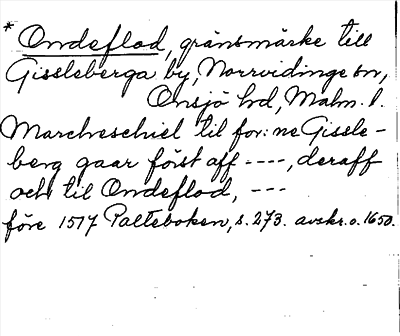 * Ondeflod, gränsmärke till
Gissleberga by, Norrvidinge sn,
Onsjö hd, Malm. l.
Marchreschiel til for: ne Gissle-
berg gaar först aff ----, deraff
och til Ondeflod, ---
före 1517 Palteboken, s. 273. avskr. o. 1650.